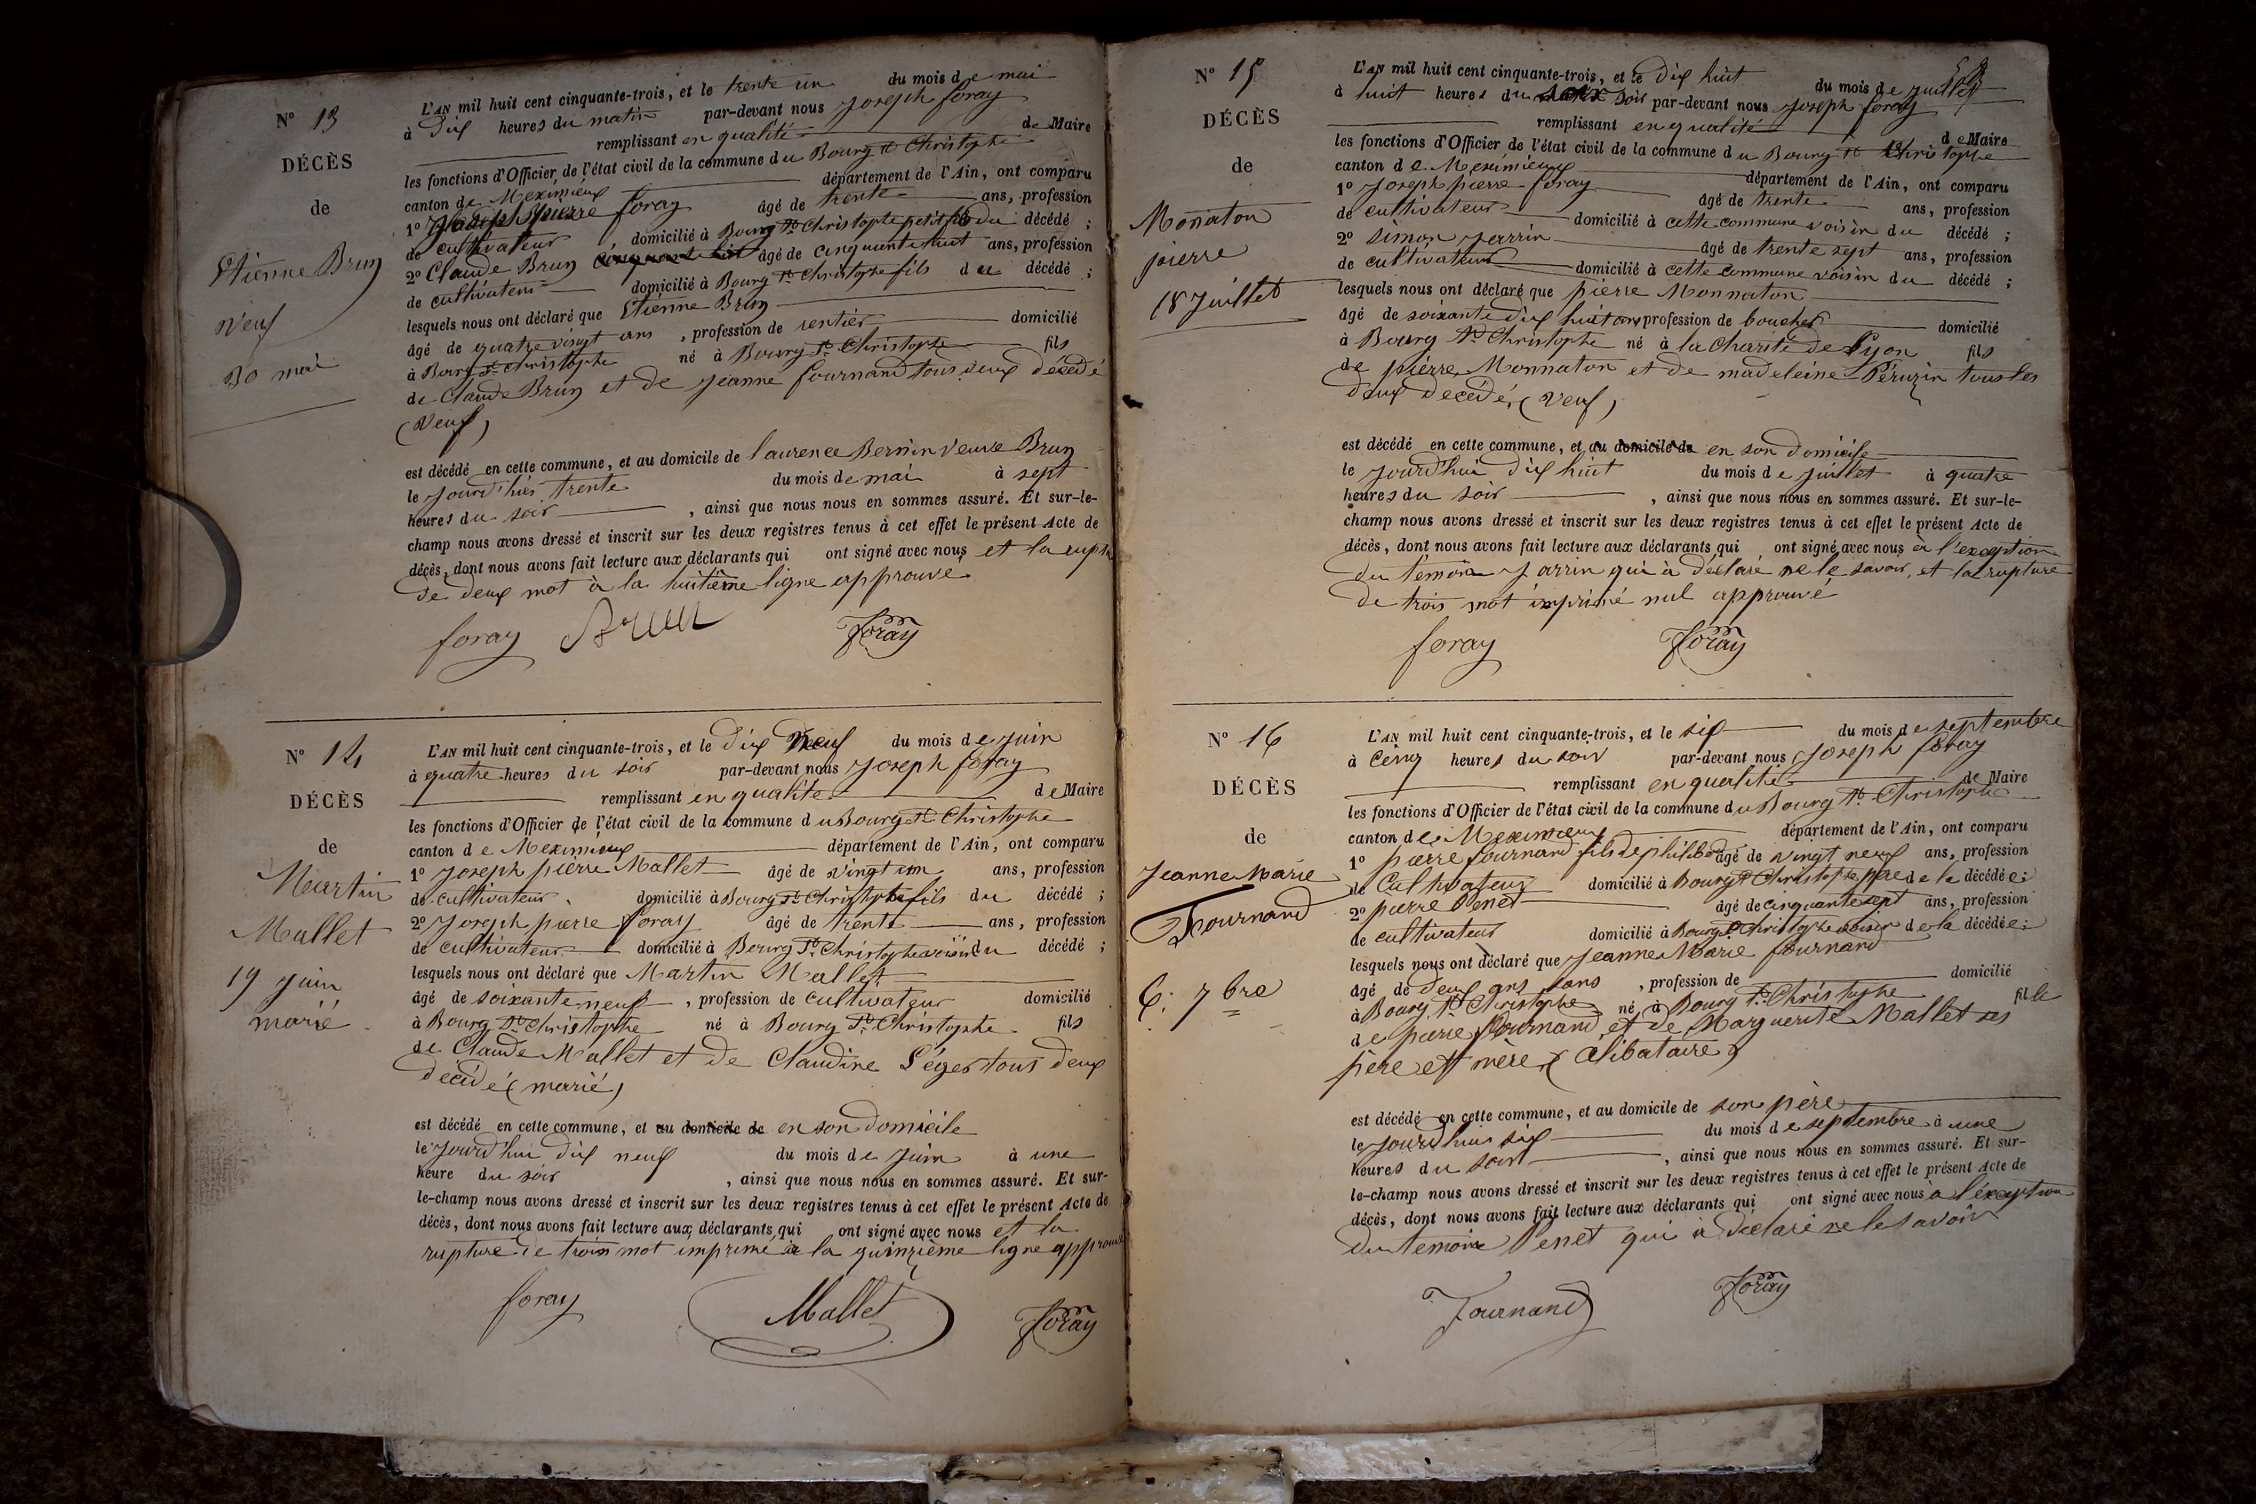 N° 13
DÉCÈS
de
Etienne Brun
Veuf
30 mai
L'AN mil huit cent cinquante-trois, et le trente un du mois de mai
à dix heures du matin par-devant nous Joseph foray
remplissant en qualité de Maire
les fonctions d'Officier de l'état civil de la commune du Bourg St Christophe
canton de Meximieux département de l'Ain, ont comparu
1° Joseph pierre foray âgé de trente ans, profession
de cultivateur domicilié à Bourg St Christophe petit fils du décédé ;
2° Claude Brun âgé de cinquante huit ans, profession
de cultivateur domicilié à Bourg St Christophe fils du décédé ;
lesquels nous ont déclaré que Etienne Brun
âgé de quatre vingt ans , profession de rentier domicilié
à Bourg St Christophe né à Bourg St Christophe fils
de Claude Brun et de Jeanne fournand tous deux décédé
(Veuf)
est décédé en cette commune, et au domicile de laurence Bernin Veuve Brun
le jourd'hier trente du mois de mai à sept
heures du soir , ainsi que nous nous en sommes assuré. Et sur-le-
champ nous avons dressé et inscrit sur les deux registres tenus à cet effet le présent Acte de
décès, dont nous avons fait lecture aux déclarants qui ont signé avec nous et la
de deux mot à la huitième ligne approuvé
foray Brun Foray
N° 14
DÉCÈS
de
Martin
Mallet
19 juin
marié
L'AN mil huit cent cinquante-trois, et le dix neuf du mois de juin
à quatre heures du soir par-devant nous Joseph foray
remplissant en qualité de Maire
les fonctions d'Officier de l'état civil de la commune du Bourg St Christophe
canton de Meximieux département de l'Ain, ont comparu
1° Joseph pierre Mallet âgé de vingt un ans, profession
de cultivateur domicilié à Bourg St Christophe fils du décédé ;
2° Joseph pierre foray âgé de trente ans, profession
de cultivateur domicilié à Bourg St Christophe voisin du décédé ;
lesquels nous ont déclaré que Martin Mallet
âgé de soixante neuf , profession de cultivateur domicilié
à Bourg St Christophe né à Bourg St Christophe fils
de Claude Mallet et de Claudine Léger tous deux
décédé (marié)
est décédé en cette commune, et au domicile de en son domicile
le jourd'hui dix neuf du mois de juin à une
heure du soir , ainsi que nous nous en sommes assuré. Et sur-
le-champ nous avons dressé et inscrit sur les deux registres tenus à cet effet le présent Acte de
décès, dont nous avons fait lecture aux déclarants qui ont signé avec nous et la
rupture de trois mot imprimé à la quinzième ligne approuvé
foray Mallet Foray
N° 15
DÉCÈS
de
Monaton
pierre
18 Juillet
L'AN mil huit cent cinquante-trois, et le dix huit du mois de juillet
à huit heures du soir par-devant nous Joseph foray
remplissant en qualité de Maire
les fonctions d'Officier de l'état civil de la commune du Bourg St Christophe
canton de Meximieux département de l'Ain, ont comparu
1° Joseph pierre foray âgé de trente ans, profession
de cultivateur domicilié à cette commune voisin du décédé ;
2° simon jarrin âgé de trente sept ans, profession
de cultivateur domicilié à cette commune voisin du décédé ;
lesquels nous ont déclaré que pierre Monnaton
âgé de soixante dix huit ans profession de boucher domicilié
à Bourg St Christophe né à la charité de Lyon fils
de pierre Monnaton et de madeleine Péruzin tous les
deux décédé (Veuf)
est décédé en cette commune, et au domicile de en son domicile
le jourd'hui dix huit du mois de juillet à quatre
heures du soir , ainsi que nous nous en sommes assuré. Et sur-le-
champ nous avons dressé et inscrit sur les deux registres tenus à cet effet le présent Acte de
décès, dont nous avons fait lecture aux déclarants qui ont signé avec nous à l'exception
du témoin Jarrin qui à déclaré ne le savoir, et la rupture
de trois mot imprimé nul approuvé
foray Foray
N° 16
DÉCÈS
de
Jeanne Marie
Fournand
6. 7bre
L'AN mil huit cent cinquante-trois, et le six du mois de septembre
à cinq heures du soir par-devant nous Joseph foray
remplissant en qualité de Maire
les fonctions d'Officier de l'état civil de la commune du Bourg St Christophe
canton de Meximieux département de l'Ain, ont comparu
1° pierre fournand fils de philibert âgé de vingt neuf ans, profession
de cultivateur domicilié à Bourg St Christophe père de la décédée ;
2° pierre Penet âgé de cinquante sept ans, profession
de cultivateur domicilié à Bourg St Christophe voisin de la décédée ;
lesquels nous ont déclaré que Jeanne Marie fournand
âgé de deux ans , profession de domicilié
à Bourg St Christophe né à Bourg St Christophe fille
de pierre fournand et de Marguerite Mallet ses
père et mère (Célibataire)
est décédé en cette commune, et au domicile de son père
le jourd'hui six du mois de septembre à une
heures du soir , ainsi que nous nous en sommes assuré. Et sur-
le-champ nous avons dressé et inscrit sur les deux registres tenus à cet effet le présent Acte de
décès, dont nous avons fait lecture aux déclarants qui ont signé avec nous à l'exception
du témoin Penet qui à déclaré ne le savoir
Fournand Foray